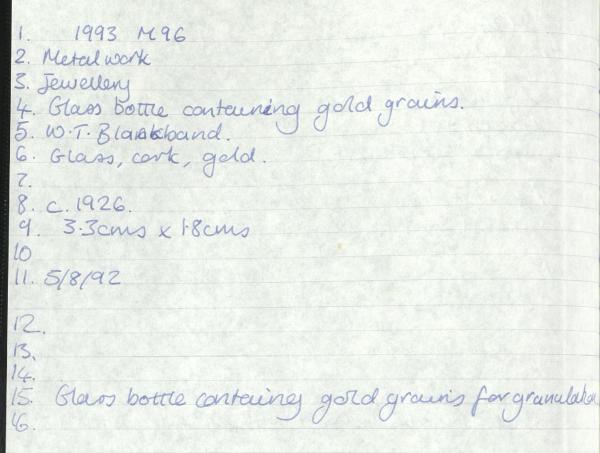 1. 1993 M96
2. Metalwork
3. Jewellery
4. Glass bottle containing gold grains.
5. W.T. Blackband.
6. Glass, cork, gold.
7.
8. c. 1926.
9. 3.3cms x 1.8cms
10
11. 5/8/92
12.
13.
14.
15. Glass bottle containing gold grains for
16.